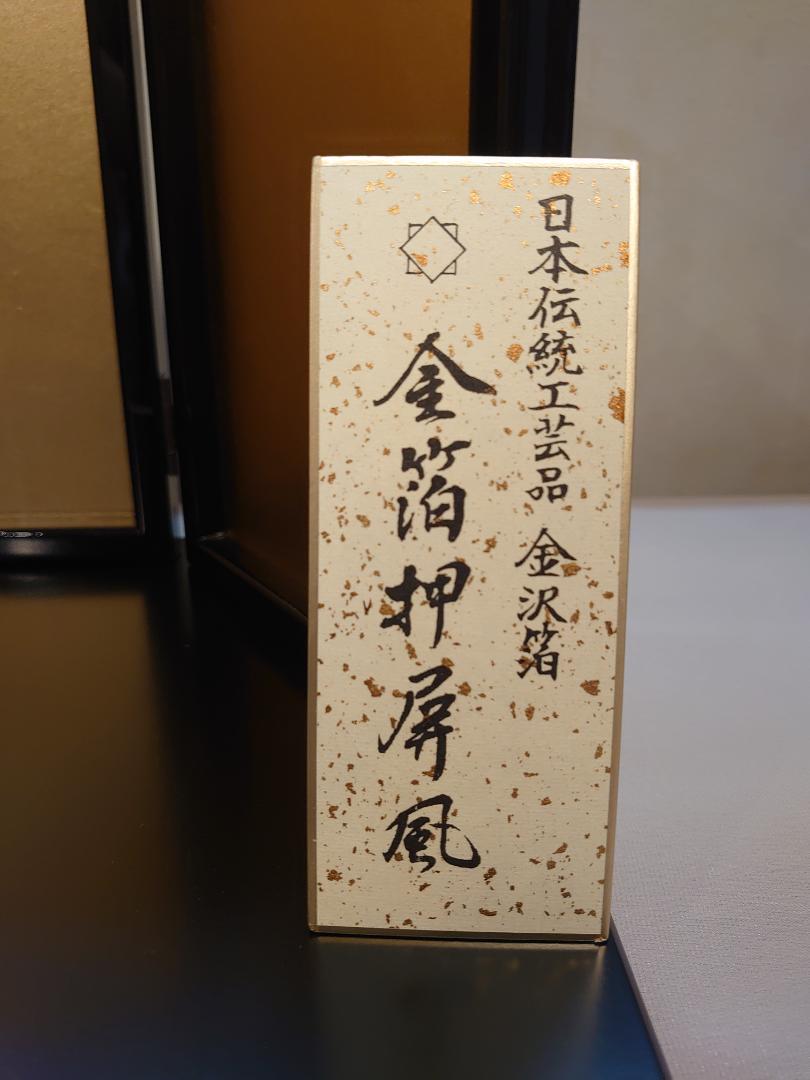 日本伝統工芸品 金沢箔
金箔押屏風